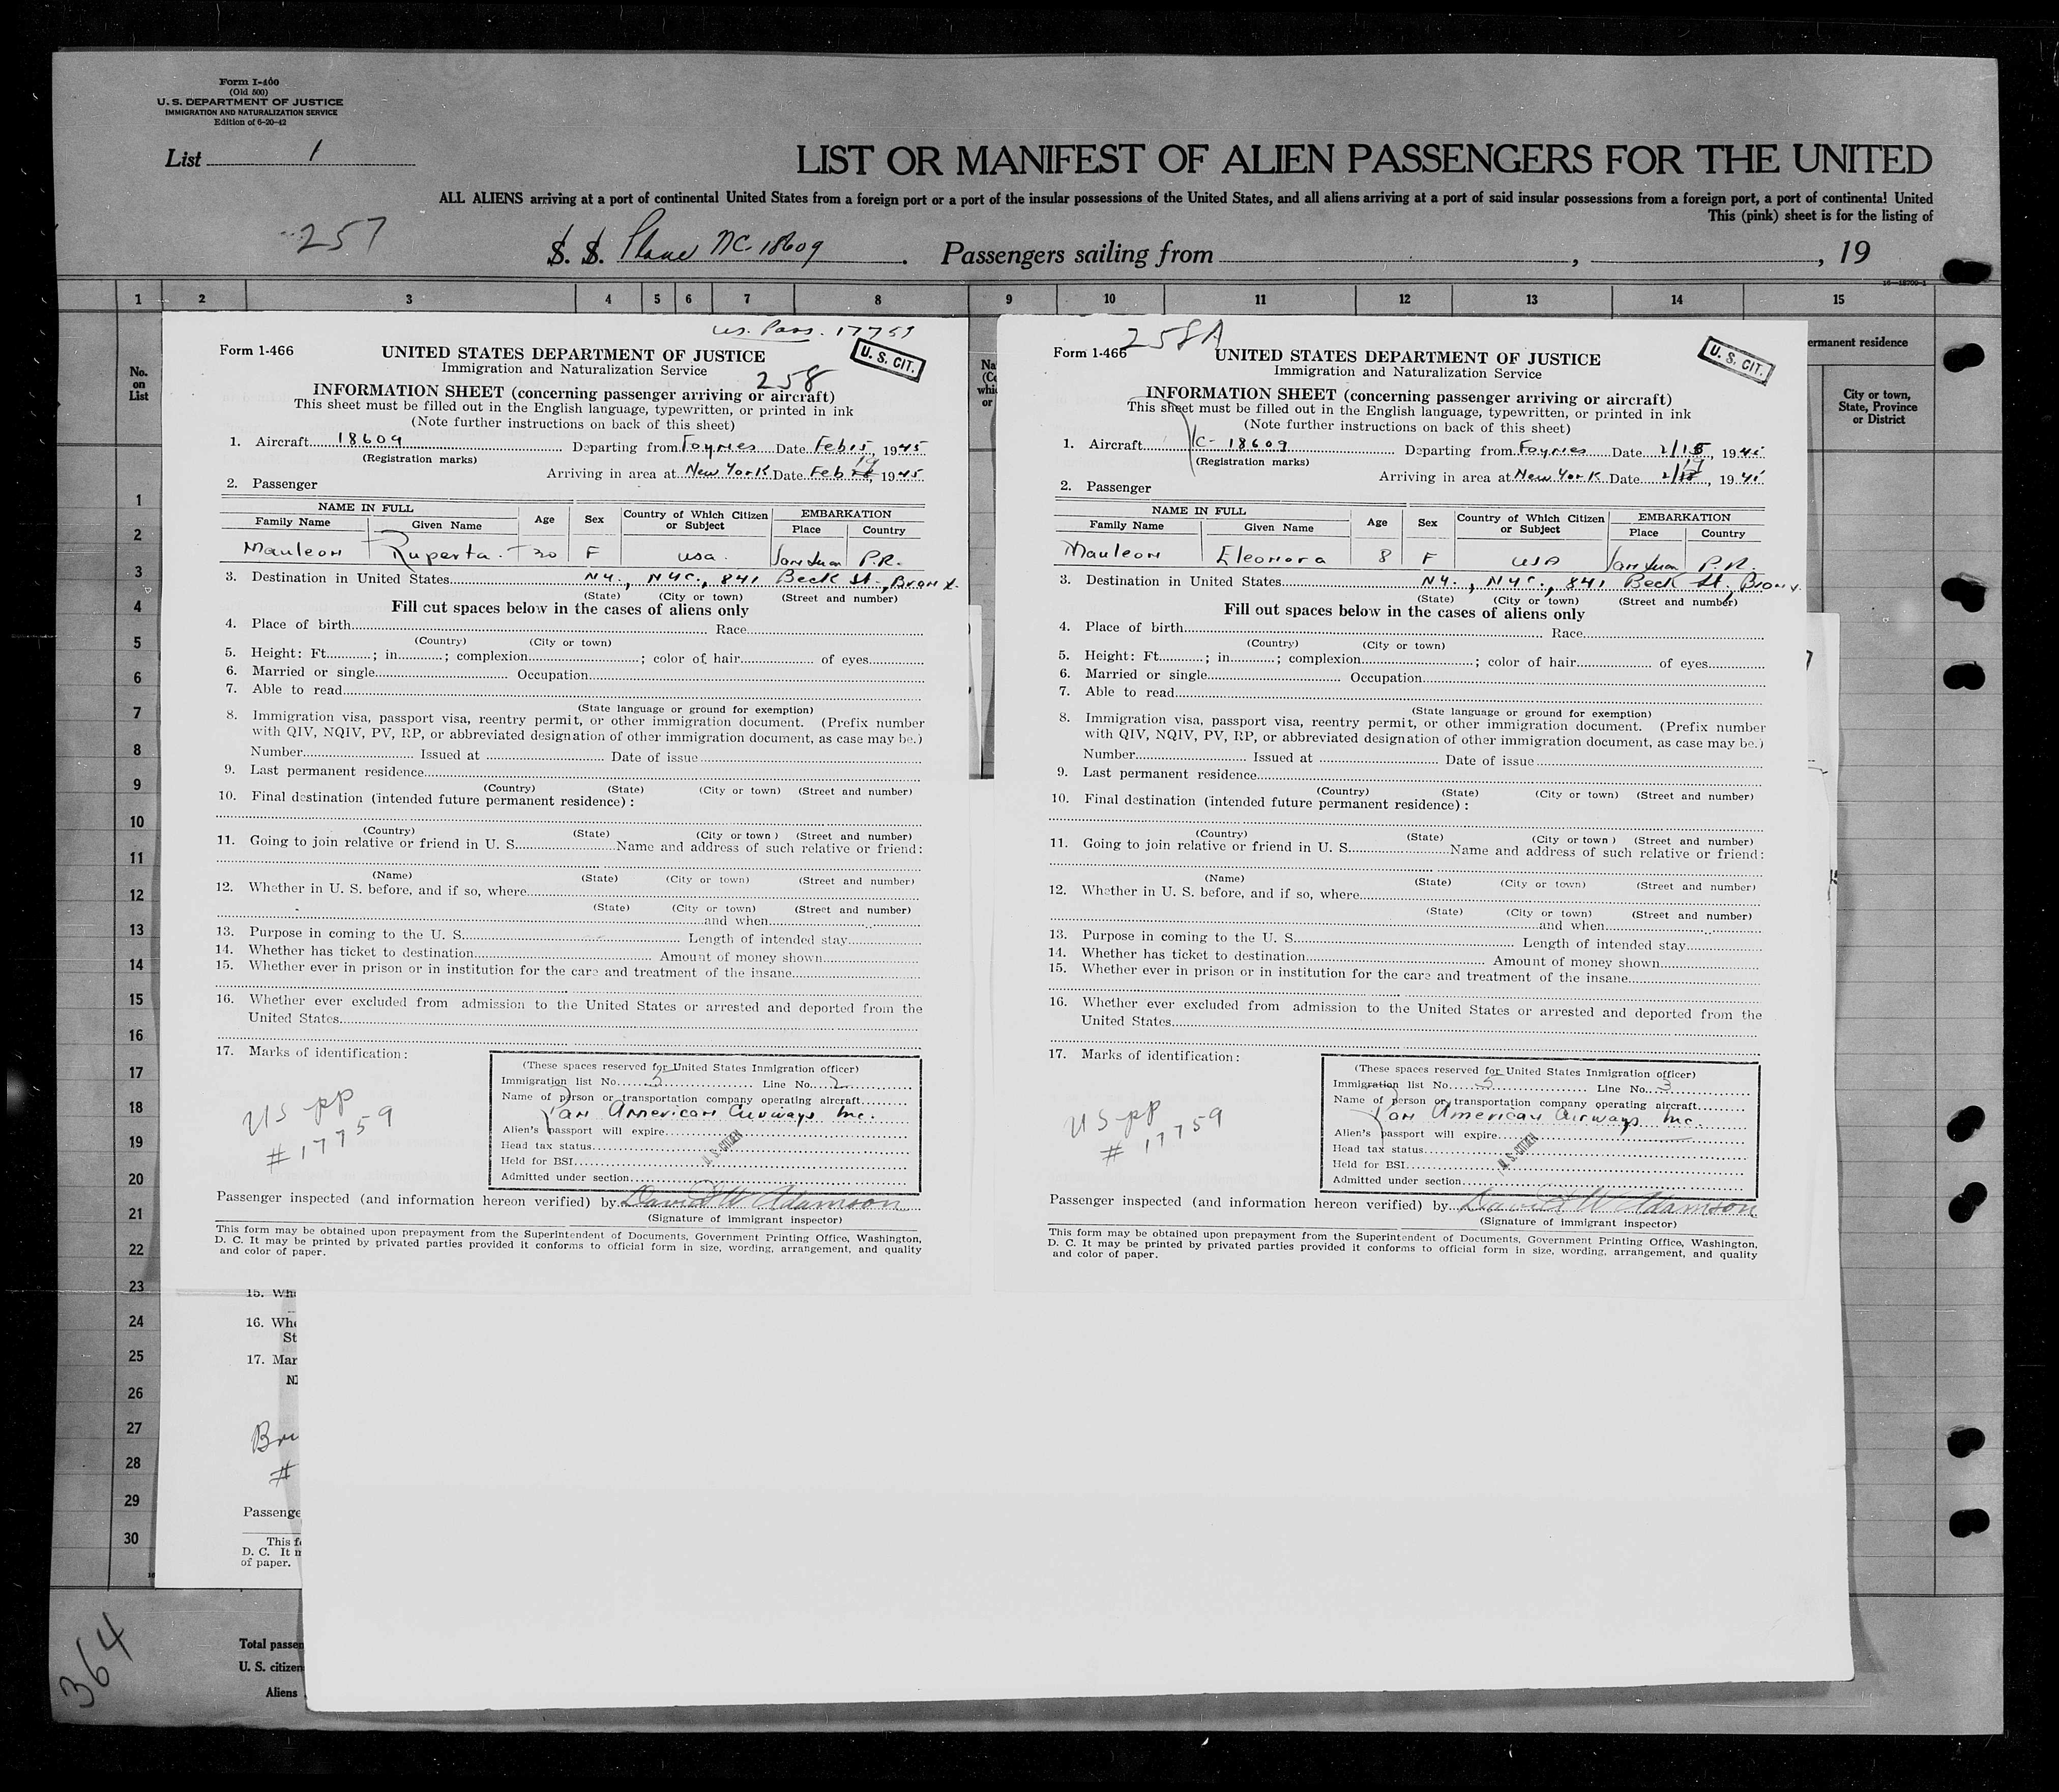 Form I-400
(Old 500)
U. S. DEPARTMENT OF JUSTICE
IMMIGRATION AND NATURALIZATION SERVICE
Edition of 6-20-42
List 1
LIST OR MANIFEST OF ALIEN PASSENGERS FOR THE UNITED
ALL ALIENS arriving at a port of continental United States from a foreign port or a port of the insular possessions of the United States, and all aliens arriving at a port of said insular possessions from a foreign port, a port of continental United
This (pink) sheet is for the listing of
257
S. S. Plane NC-18609. Passengers sailing from , , 19
1 2 3 4 5 6 7 8 9 10 11 12 13 14 15
No. on List
ermanent residence
City or town, State, Province or District
1
2
3
4
5
6
7
8
9
10
11
12
13
14
15
16
17
18
19
20
21
22
23
24
25
26
27
28
29
30
U.S. Pass. 17759
Form 1-466
UNITED STATES DEPARTMENT OF JUSTICE
U. S. CIT.
Immigration and Naturalization Service
258
INFORMATION SHEET (concerning passenger arriving or aircraft)
This sheet must be filled out in the English language, typewritten, or printed in ink
(Note further instructions on back of this sheet)
1. Aircraft 18609 Departing from Foynes Date Feb 15, 1945
(Registration marks)
Arriving in area at New York Date Feb 19, 1945
2. Passenger
NAME IN FULL Age Sex Country of Which Citizen or Subject EMBARKATION
Family Name Given Name Place Country
Mauleon Ruperta 30 F USA San Juan P.R.
3. Destination in United States N.Y., NYC., 841 Beck St., Bronx
(State) (City or town) (Street and number)
Fill out spaces below in the cases of aliens only
4. Place of birth Race
(Country) (City or town)
5. Height: Ft. ; in ; complexion ; color of hair of eyes
6. Married or single Occupation
7. Able to read
(State language or ground for exemption)
8. Immigration visa, passport visa, reentry permit, or other immigration document. (Prefix number
with QIV, NQIV, PV, RP, or abbreviated designation of other immigration document, as case may be.)
Number Issued at Date of issue
9. Last permanent residence
(Country) (State) (City or town) (Street and number)
10. Final destination (intended future permanent residence) :
(Country) (State) (City or town ) (Street and number)
11. Going to join relative or friend in U. S. Name and address of such relative or friend:
(Name) (State) (City or town) (Street and number)
12. Whether in U. S. before, and if so, where
(State) (City or town) (Street and number)
and when
13. Purpose in coming to the U. S. Length of intended stay
14. Whether has ticket to destination Amount of money shown
15. Whether ever in prison or in institution for the care and treatment of the insane
16. Whether ever excluded from admission to the United States or arrested and deported from the
United States
17. Marks of identification:
US PP
# 17759
(These spaces reserved for United States Inmigration officer)
Immigration list No. 5 Line No. 2
Name of person or transportation company operating aircraft
Pan American Airways Inc.
Alien's passport will expire
Head tax status
U. S. CITIZEN
Held for BSI
Admitted under section
Passenger inspected (and information hereon verified) by David W Adamson
(Signature of immigrant inspector)
This form may be obtained upon prepayment from the Superintendent of Documents, Government Printing Office, Washington,
D. C. It may be printed by privated parties provided it conforms to official form in size, wording, arrangement, and quality
and color of paper.
258A
Form 1-466
UNITED STATES DEPARTMENT OF JUSTICE
U. S. CIT.
Immigration and Naturalization Service
INFORMATION SHEET (concerning passenger arriving or aircraft)
This sheet must be filled out in the English language, typewritten, or printed in ink
(Note further instructions on back of this sheet)
1. Aircraft NC-18609 Departing from Foynes Date 2/15, 1945
(Registration marks)
Arriving in area at New York Date 2/19, 1945
2. Passenger
NAME IN FULL Age Sex Country of Which Citizen or Subject EMBARKATION
Family Name Given Name Place Country
Mauleon Eleonora 8 F USA San Juan P.R.
3. Destination in United States N.Y., NYC., 841 Beck St, Bronx.
(State) (City or town) (Street and number)
Fill out spaces below in the cases of aliens only
4. Place of birth Race
(Country) (City or town)
5. Height: Ft. ; in ; complexion ; color of hair of eyes
6. Married or single Occupation
7. Able to read
(State language or ground for exemption)
8. Immigration visa, passport visa, reentry permit, or other immigration document. (Prefix number
with QIV, NQIV, PV, RP, or abbreviated designation of other immigration document, as case may be.)
Number Issued at Date of issue
9. Last permanent residence
(Country) (State) (City or town) (Street and number)
10. Final destination (intended future permanent residence) :
(Country) (State) (City or town ) (Street and number)
11. Going to join relative or friend in U. S. Name and address of such relative or friend:
(Name) (State) (City or town) (Street and number)
12. Whether in U. S. before, and if so, where
(State) (City or town) (Street and number)
and when
13. Purpose in coming to the U. S. Length of intended stay
14. Whether has ticket to destination Amount of money shown
15. Whether ever in prison or in institution for the care and treatment of the insane
16. Whether ever excluded from admission to the United States or arrested and deported from the
United States
17. Marks of identification:
US PP
# 17759
(These spaces reserved for United States Inmigration officer)
Immigration list No. 5 Line No. 3
Name of person or transportation company operating aircraft
Pan American Airways Inc.
Alien's passport will expire
Head tax status
U. S. CITIZEN
Held for BSI
Admitted under section
Passenger inspected (and information hereon verified) by David W Adamson
(Signature of immigrant inspector)
This form may be obtained upon prepayment from the Superintendent of Documents, Government Printing Office, Washington,
D. C. It may be printed by privated parties provided it conforms to official form in size, wording, arrangement, and quality
and color of paper.
15. Wh
16. Whe
St
17. Mar
Passenge
This f
D. C. It m
of paper.
Total passen
U. S. citizen
Aliens
364